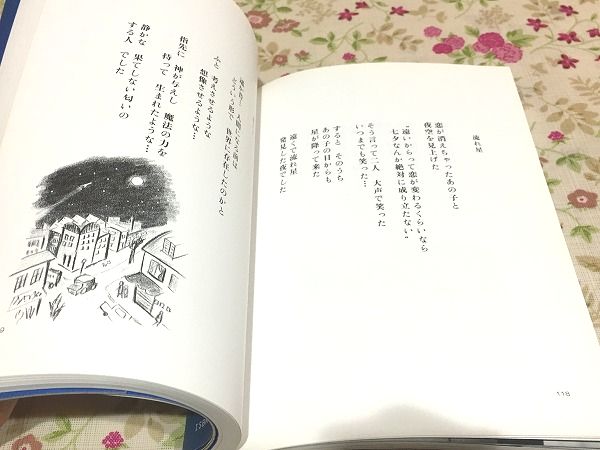 流れ星
恋が消えちゃったあの子と
夜空を見上げた
“遠いからって恋が変わるくらいなら
七夕なんか絶対に成り立たない”
そう言って二人 大声で笑った
いつまでも笑った…
すると そのうち
あの子の目からも
星が降って来た
遠くで流れ星
発見した夜でした
118
どういう形で 世界に存在したのかと
ふと 考えさせるような
想像させるような…
指先に 神が与えし 魔法の力を
持って 生まれたような…
静かな 果てしない匂いの
する人 でした
9
ISBN